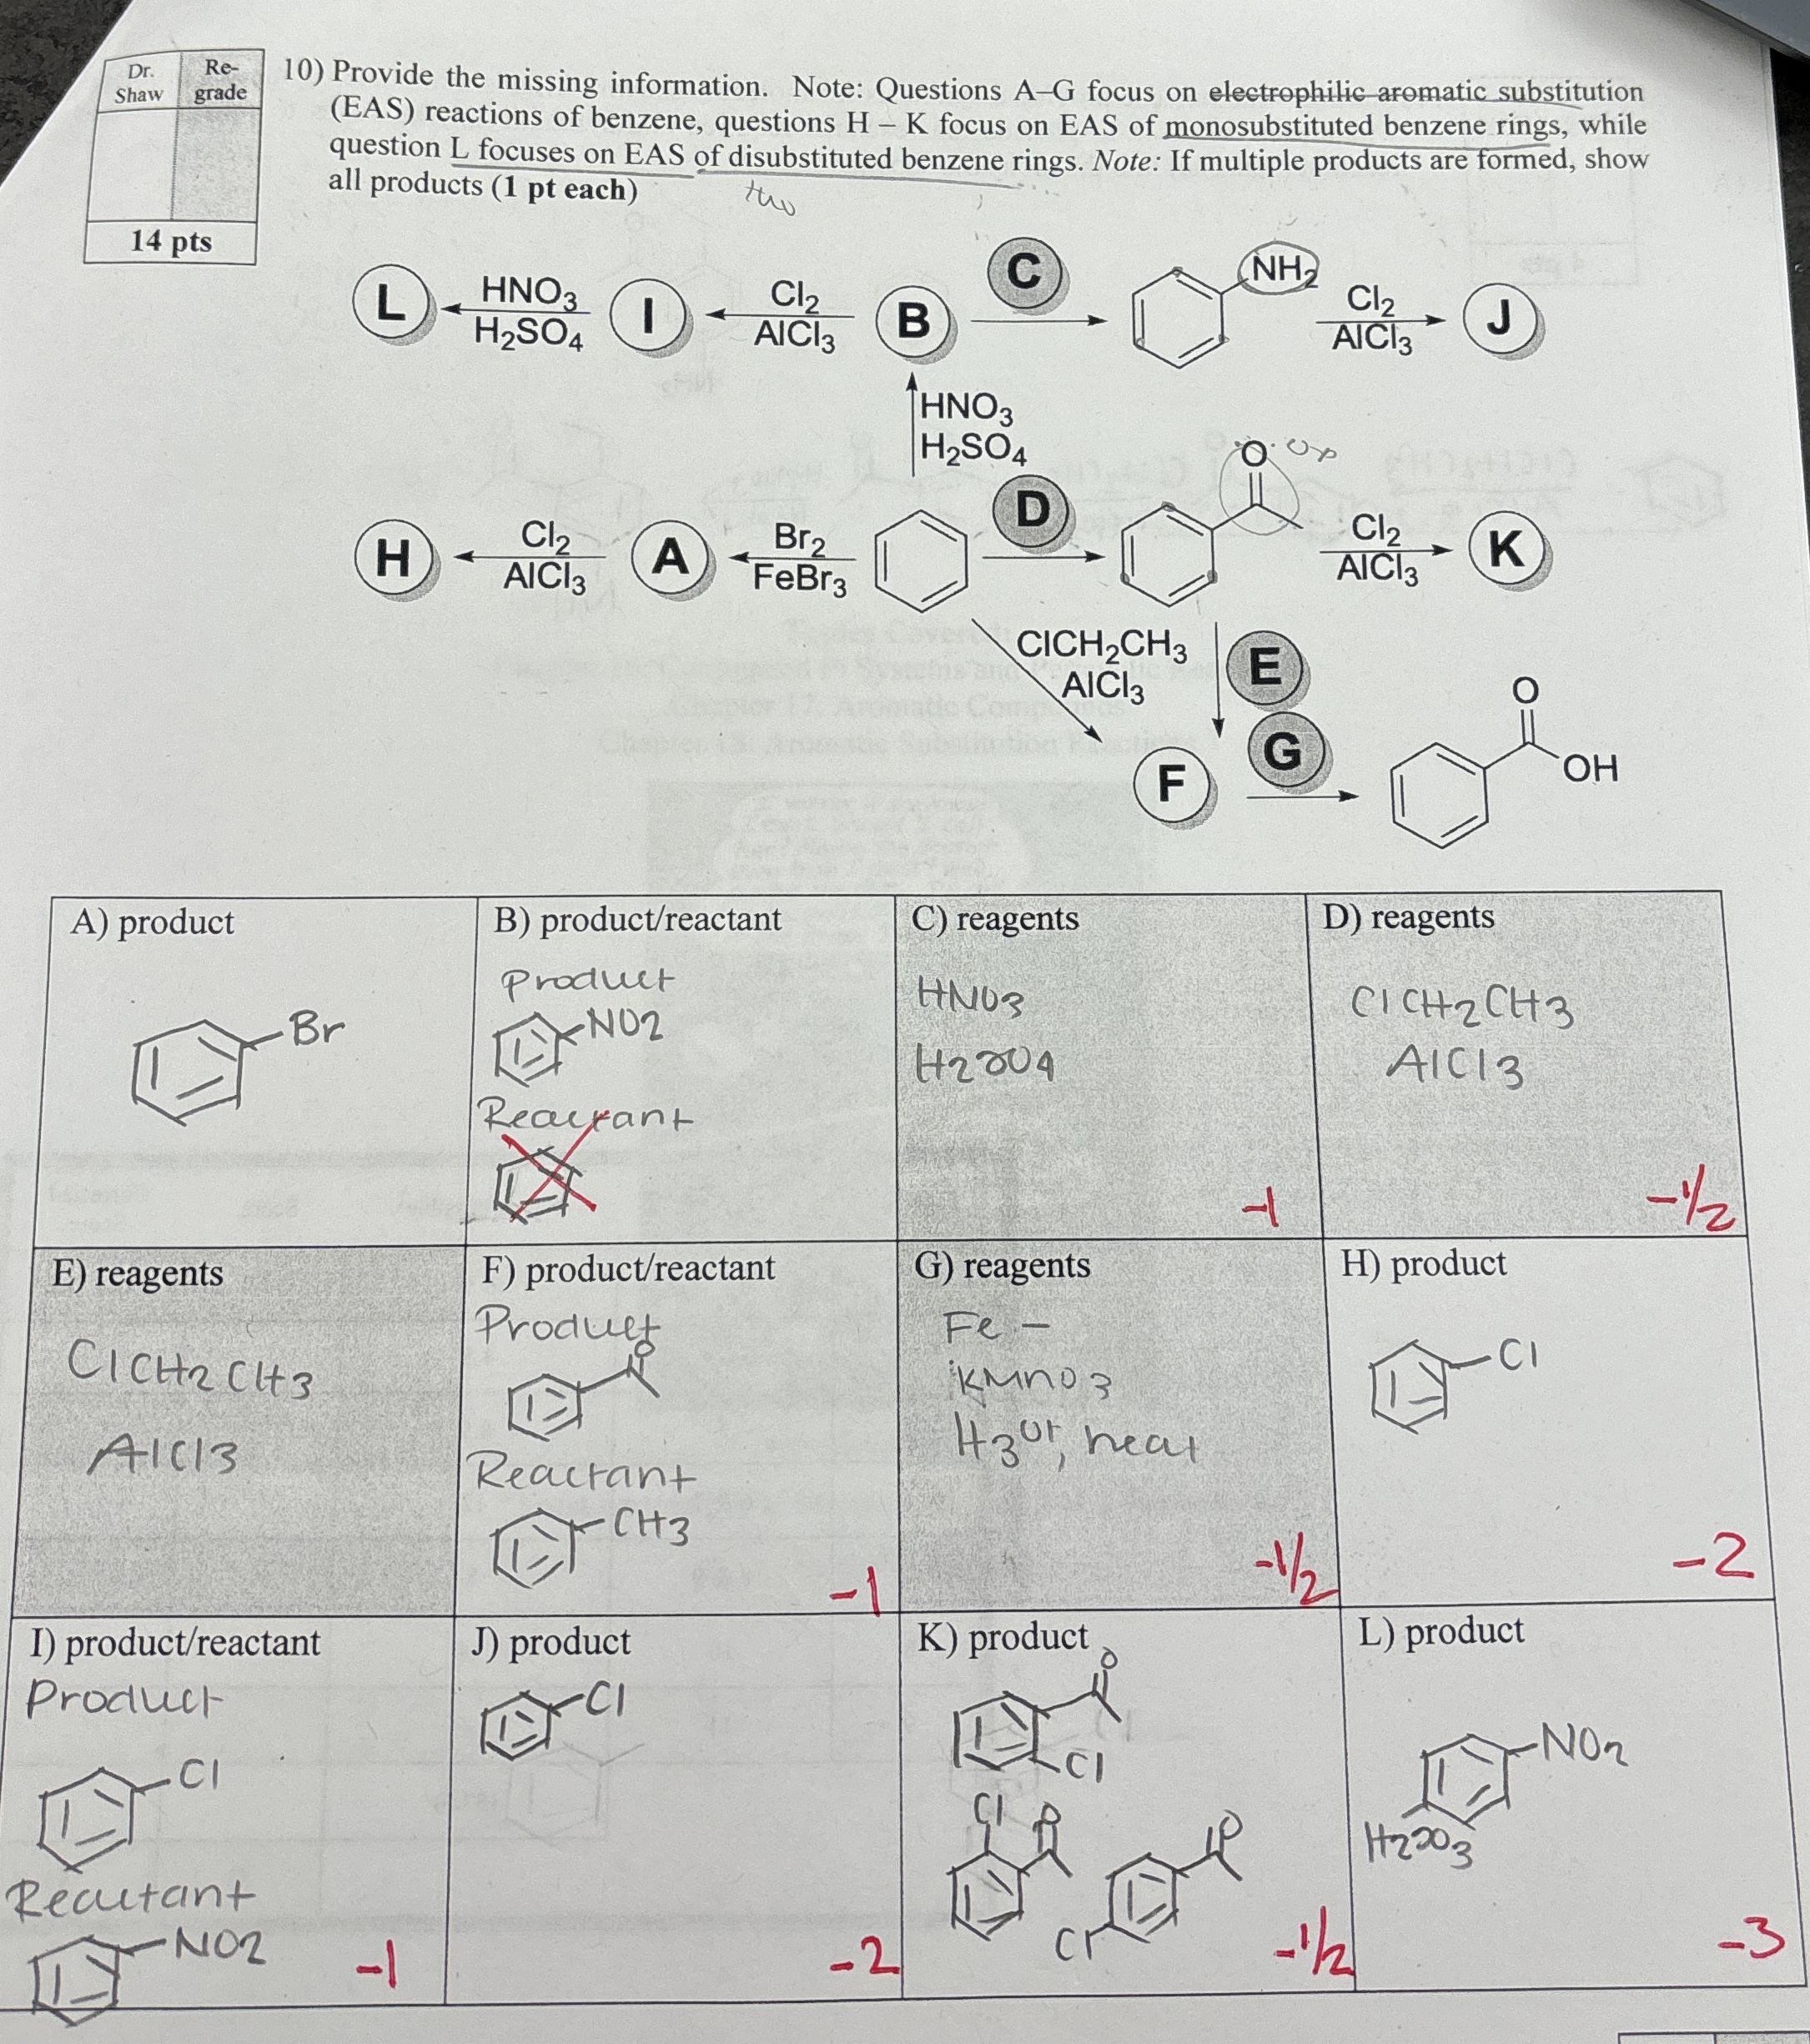 Dr. Shaw
Re-grade
14 pts
10) Provide the missing information. Note: Questions A–G focus on electrophilic aromatic substitution
(EAS) reactions of benzene, questions H – K focus on EAS of monosubstituted benzene rings, while
question L focuses on EAS of disubstituted benzene rings. Note: If multiple products are formed, show
all products (1 pt each)
L HNO3 H2SO4 I Cl2 AlCl3 B C NH2 Cl2 AlCl3 J
HNO3
H2SO4
H Cl2 AlCl3 A Br2 FeBr3 D O Cl2 AlCl3 K
ClCH2CH3
AlCl3
E
F G O OH
A) product
Br
B) product/reactant
Product
NO2
Reactant
C) reagents
HNO3
H2SO4
-1
D) reagents
ClCH2CH3
AlCl3
-1/2
E) reagents
ClCH2CH3
AlCl3
F) product/reactant
Product
O
Reactant
CH3
-1
G) reagents
Fe -
KMnO3
H3O+, heat
-1/2
H) product
Cl
-2
I) product/reactant
Product
Cl
Reactant
NO2
-1
J) product
Cl
-2
K) product
O
Cl
Cl O
O
Cl
-1/2
L) product
NO2
H2SO3
-3